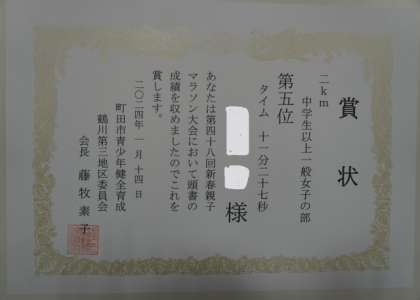 賞状
二km
中学生以上一般女子の部
第五位
タイム 十一分二十七秒
様
あなたは第四十八回新春親子
マラソン大会において頭書の
成績を収めましたのでこれを
賞します。
二〇二四年一月十四日
町田市青少年健全育成
鶴川第三地区委員会
会長 藤牧素子